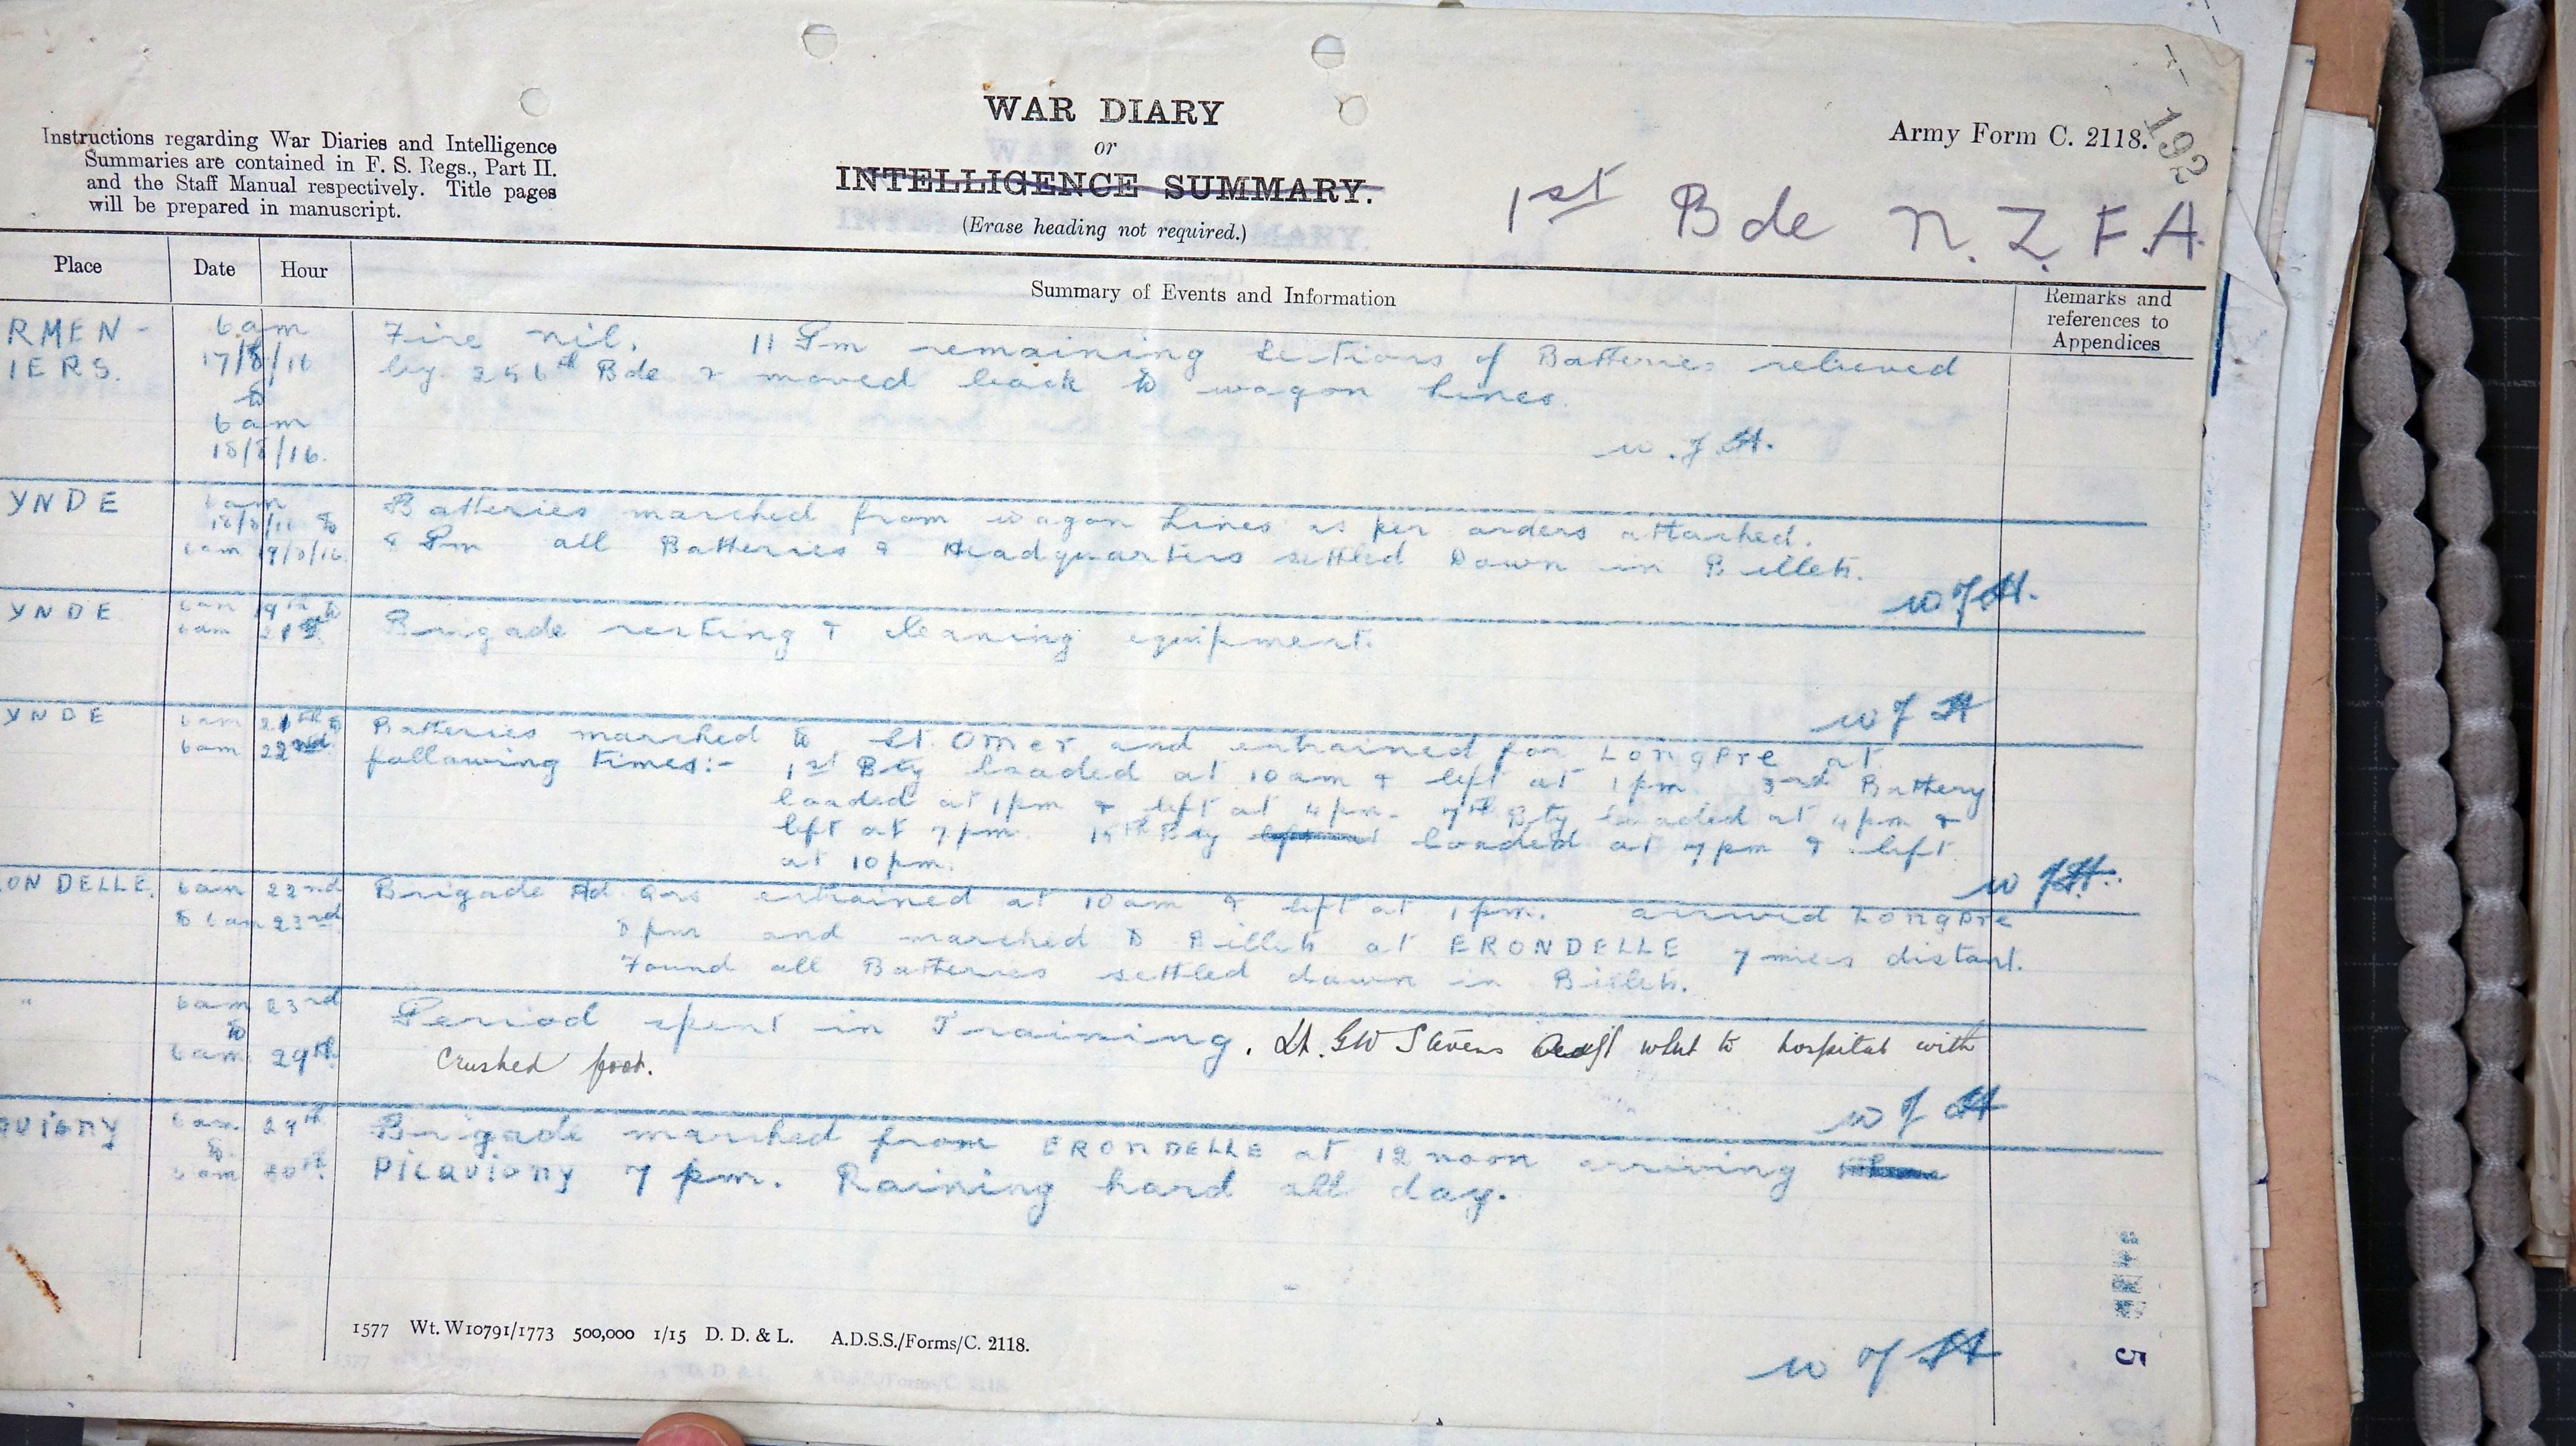 WAR DIARY
or
INTELLIGENCE SUMMARY.
(Erase heading not required.)
Instructions regarding War Diaries and Intelligence
Summaries are contained in F. S. Regs., Part II.
and the Staff Manual respectively. Title pages
will be prepared in manuscript.
Army Form C. 2118.
192
1st Bde N.Z.F.A.
Place Date Hour Summary of Events and Information Remarks and references to Appendices
RMEN- 6 am Fire nil. 11 Pm remaining Sections of Batteries relieved
IERS. 17/8/16 by 256th Bde & moved back to wagon lines.
to
6 am
18/8/16. W.J.H.
YNDE 6 am 18/8/16 to Batteries marched from wagon Lines as per orders attached.
6 am 19/8/16 8 Pm all Batteries & Headquarters settled Down in Billets.
W J H.
YNDE 6 am 19th to
6 am 21st Brigade resting & cleaning equipment.
W J H
YNDE 6 am 21st to Batteries marched to St. Omer and entrained for Longpre at
6 am 22nd following times:- 1st Bty loaded at 10 am & left at 1 pm 3rd Battery
loaded at 1 pm & left at 4 pm. 7th Bty loaded at 4 pm &
left at 7 pm. 15th Bty loaded at 7 pm & left
at 10 pm.
W J H.
ONDELLE. 6 am 22nd Brigade Hd Qrs entrained at 10 am & left at 1 pm. arrived Longpre
to 6 am 23rd 8 pm and marched to Billets at ERONDELLE 7 miles distant.
Found all Batteries settled down in Billets.
" 6 am 23rd Period spent in Training. Lt. GW Stevens went to hospital with
to
6 am 29th crushed foot.
W J H
quigny 6 am 29th Brigade marched from ERONDELLE at 12 noon arriving
to
6 am 30th Picquigny 7 pm. Raining hard all day.
1577 Wt. W10791/1773 500,000 1/15 D. D. & L. A.D.S.S./Forms/C. 2118.
W J H
5